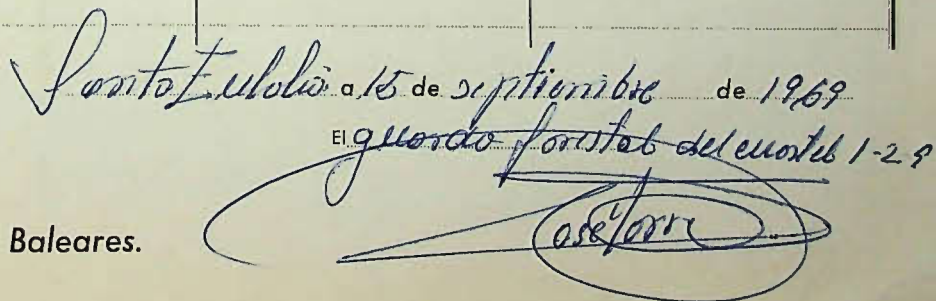 Santa Eulalia a 15 de septiembre de 1969
El guarda forestal del cuartel 1-2ª
José Torre
Baleares.